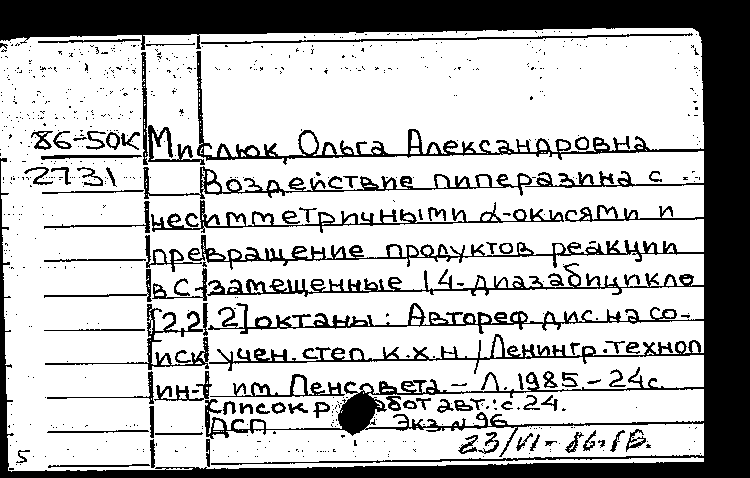 86-50К Мислюк, Ольга Александровна
2731 Воздействие пиперазина с
несимметричными α-окисями и
превращение продуктов реакции
в С-замещенные 1,4-диазабицикло
[2,2,2] октаны: Автореф. дис. на со-
иск учен. степ. к.х.н. / Ленингр. технол
ин-т им. Ленсовета. - Л., 1985. - 24с.
Список работ авт.: с. 24.
ДСП. Экз. N 96
23/VI - 86. ГВ.
5